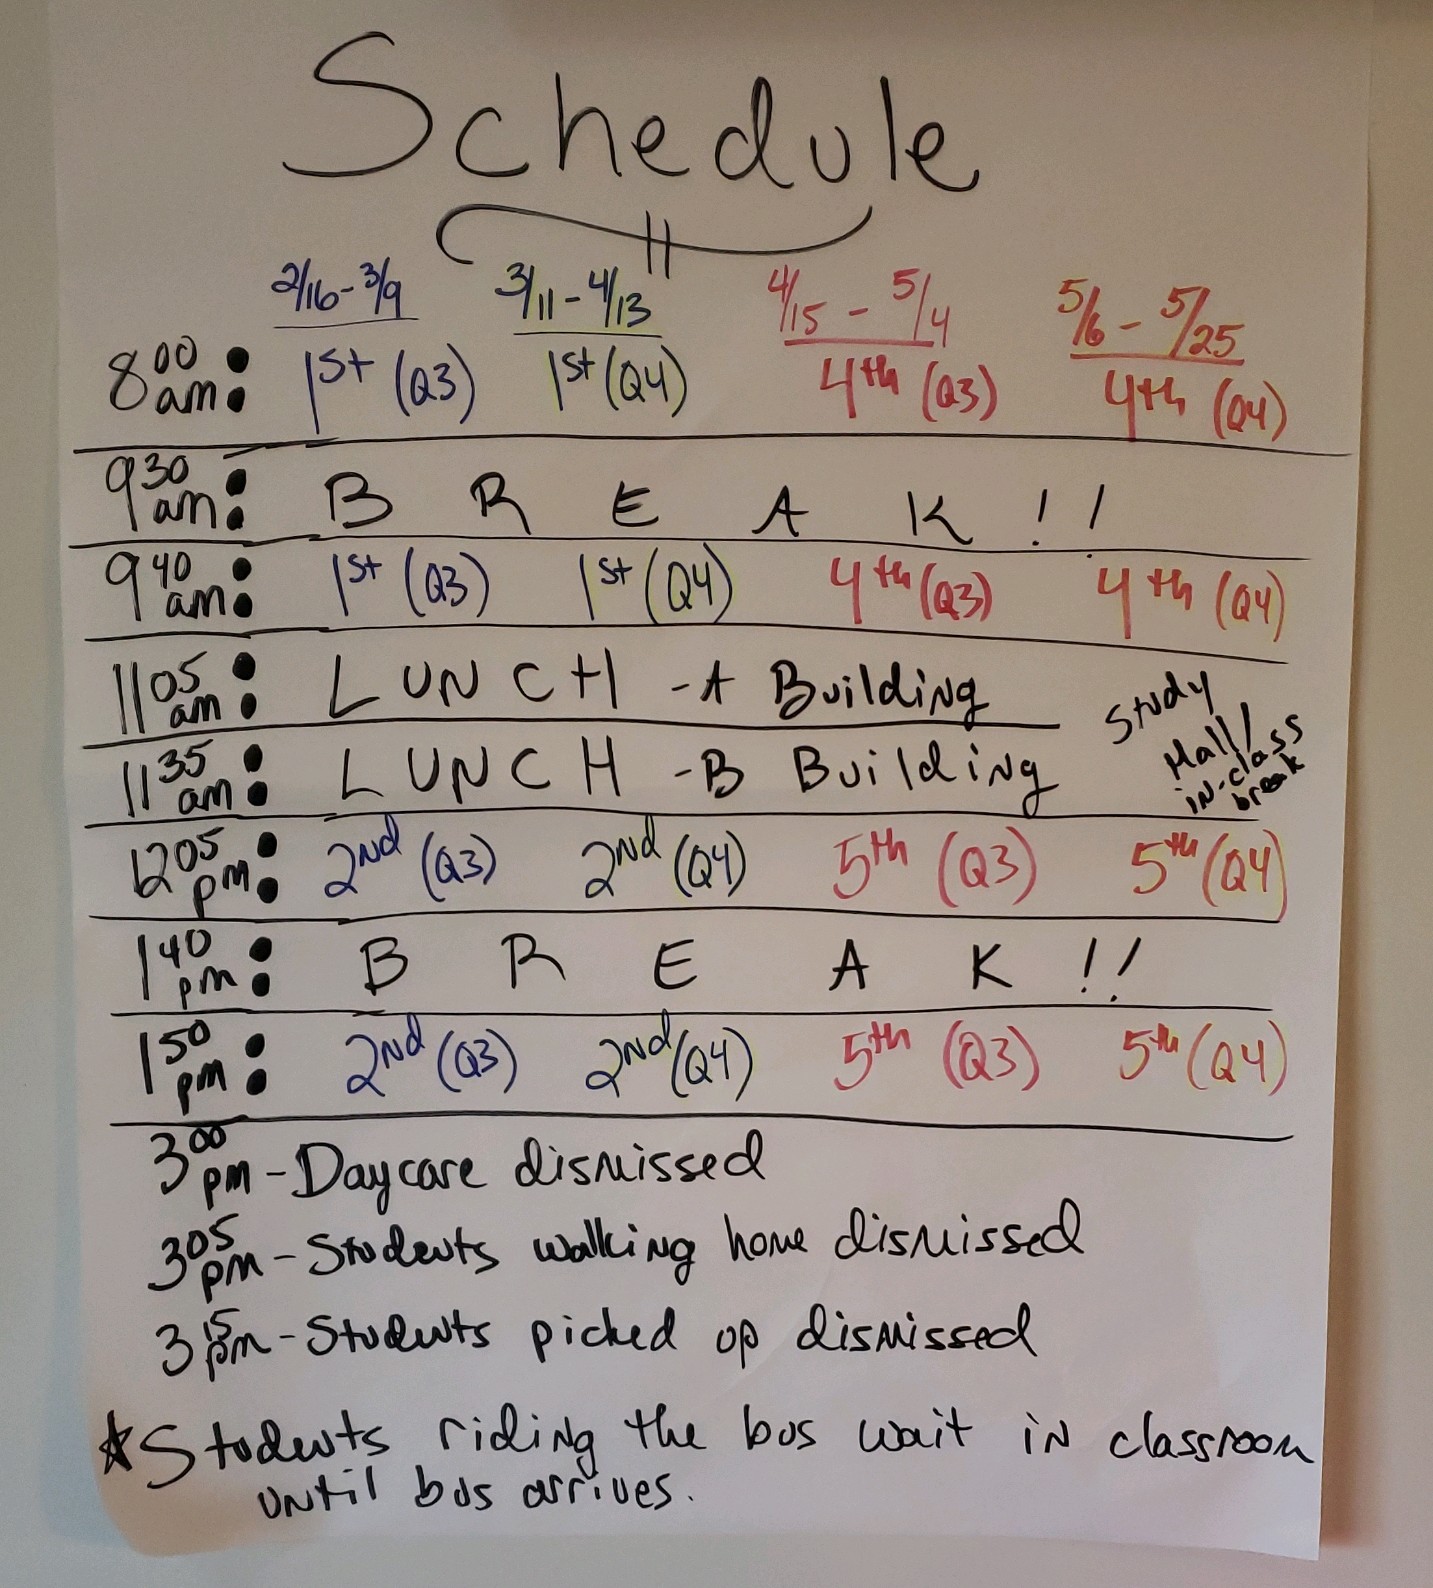 Schedule
2/16-3/9 3/11-4/13 4/15 - 5/4 5/6 - 5/25
8 00 am: 1st (Q3) 1st (Q4) 4th (Q3) 4th (Q4)
9 30 am: B R E A K !!
9 40 am: 1st (Q3) 1st (Q4) 4th (Q3) 4th (Q4)
11 05 am: LUNCH - A Building
11 35 am: LUNCH - B Building
Study
Hall/
in-class
break
12 05 pm: 2nd (Q3) 2nd (Q4) 5th (Q3) 5th (Q4)
1 40 pm: B R E A K !!
1 50 pm: 2nd (Q3) 2nd (Q4) 5th (Q3) 5th (Q4)
3 00 pm - Daycare dismissed
3 05 pm - Students walking home dismissed
3 15 pm - Students picked up dismissed
★Students riding the bus wait in classroom
until bus arrives.